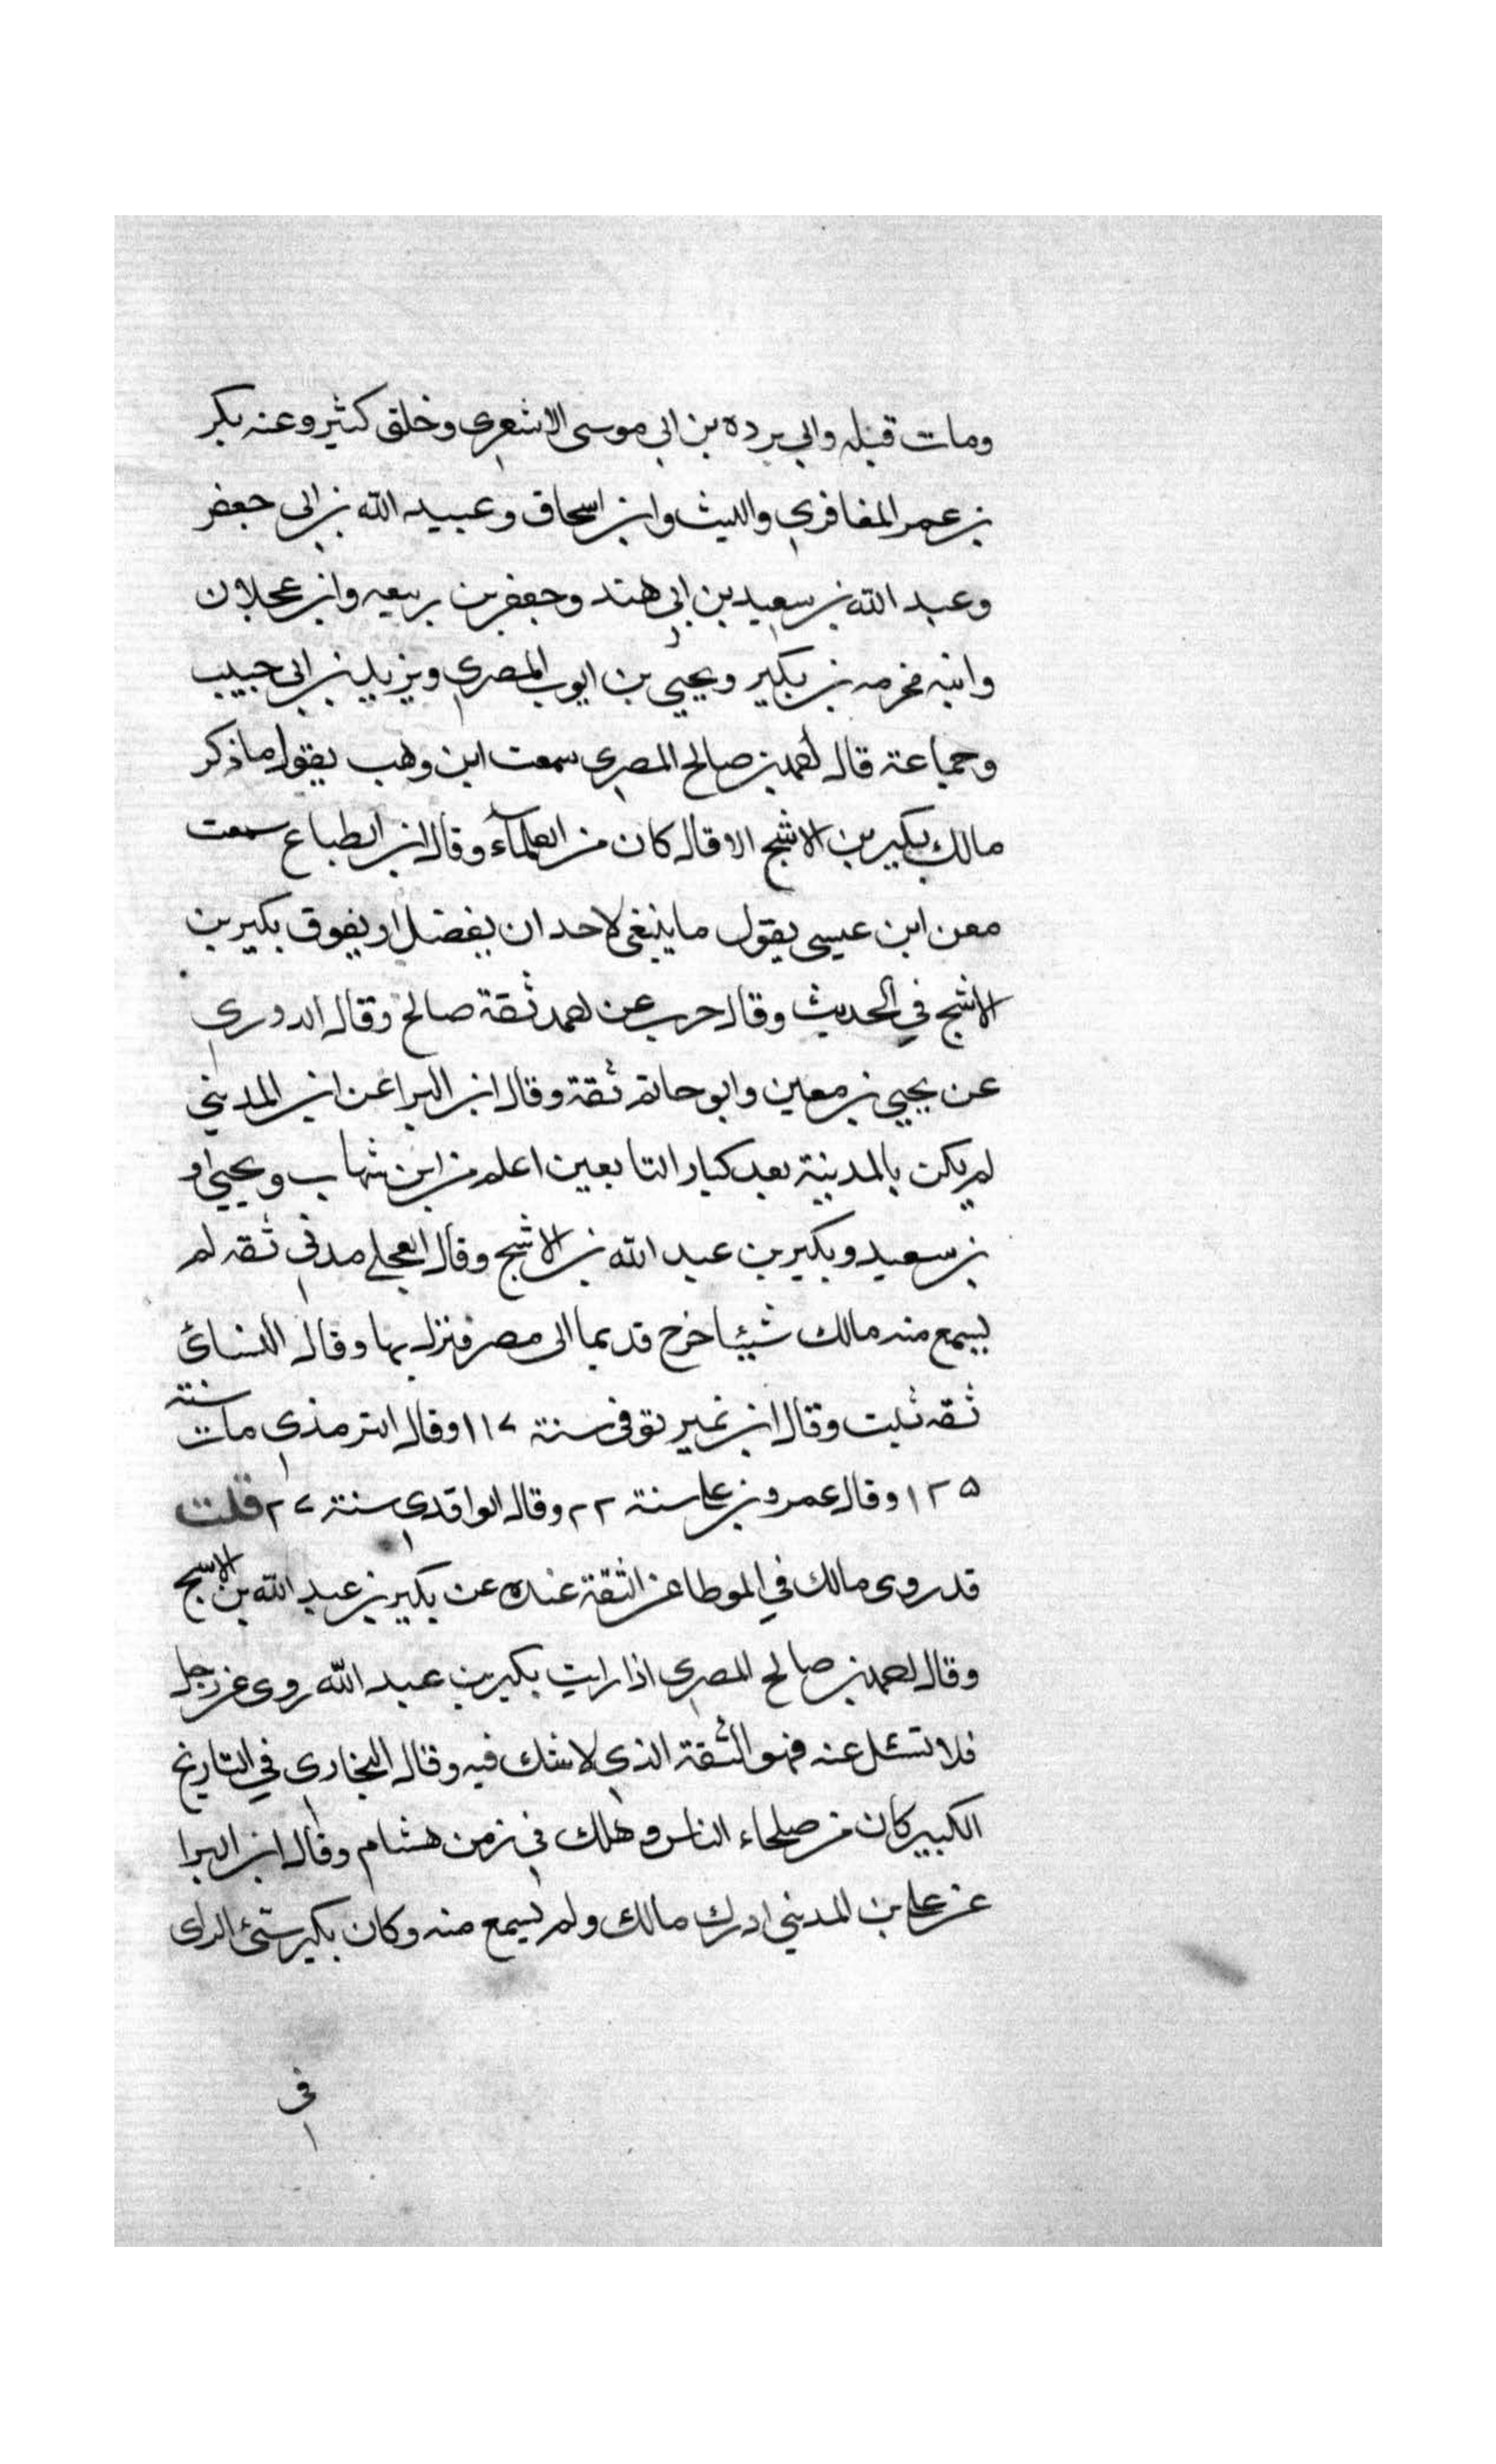 ومات قبله وابي برده بن ابي موسى الاشعري وخلق كثير وعنه بكر
بن عمر المغافري والليث وابن اسحاق وعبيد الله بن ابي جعفر
وعبد الله بن سعيد بن ابي هند وجعفر بن ربيعه وابن عجلان
وابنه مخرمه بن بكير ويحيى بن ايوب المصري ويزيد بن ابي حبيب
وجماعة قال احمد بن صالح المصري سمعت ابن وهب يقول ما ذكر
مالك بكير بن الاشج الا قال كان من العلمآء وقال ابن الطباع سمعت
معن ابن عيسى يقول ما ينبغي لاحد ان يفضل او يفوق بكير بن
الاشج في الحديث وقال حرب عن احمد ثقة صالح وقال الدوري
عن يحيى بن معين وابو حاتم ثقة وقال ابن البرا عن ابن المديني
لم يكن بالمدينة بعد كبار التابعين اعلم من ابن شهاب ويحيى او
بن سعيد وبكير بن عبد الله بن الاشج وقال العجلي مدني ثقه لم
يسمع منه مالك شيئا خرج قديما الى مصر فنزل بها وقال النسائي
ثقه ثبت وقال ابن نمير توفي سنة ١١٧ وقال الترمذي مات سنة
١٢٥ وقال عمرو بن علي سنة ٢٢ وقال الواقدي سنة ٢٧ قلت
قد روى مالك في الموطا عن الثقة عنده عن بكير بن عبد الله بن الاشج
وقال احمد بن صالح المصري اذا رايت بكير بن عبد الله روى عن رجل
فلا تسئل عنه فهو الثقة الذي لا شك فيه وقال البخاري في التاريخ
الكبير كان من صلحاء الناس وهلك في زمن هشام وقال ابن البرا
عن علي بن المديني ادرك مالك ولم يسمع منه وكان بكير سيئ الراى
في